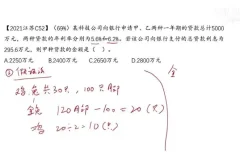 【2021江苏C52】(66%) 某科技公司向银行申请甲、乙两种一年期的贷款总计5000
万元，两种贷款的年利率分别为5.6%和6.2%。若该公司向银行支付的总贷款利息为
295.6万元，则甲种贷款的金额是（ ）。
A.2250万元 B.2400万元 C.2650万元 D.2800万元
① 假设法 金
鸡兔共30只，100只脚
120脚-100=20(只)
鸡 20÷2=10(只)